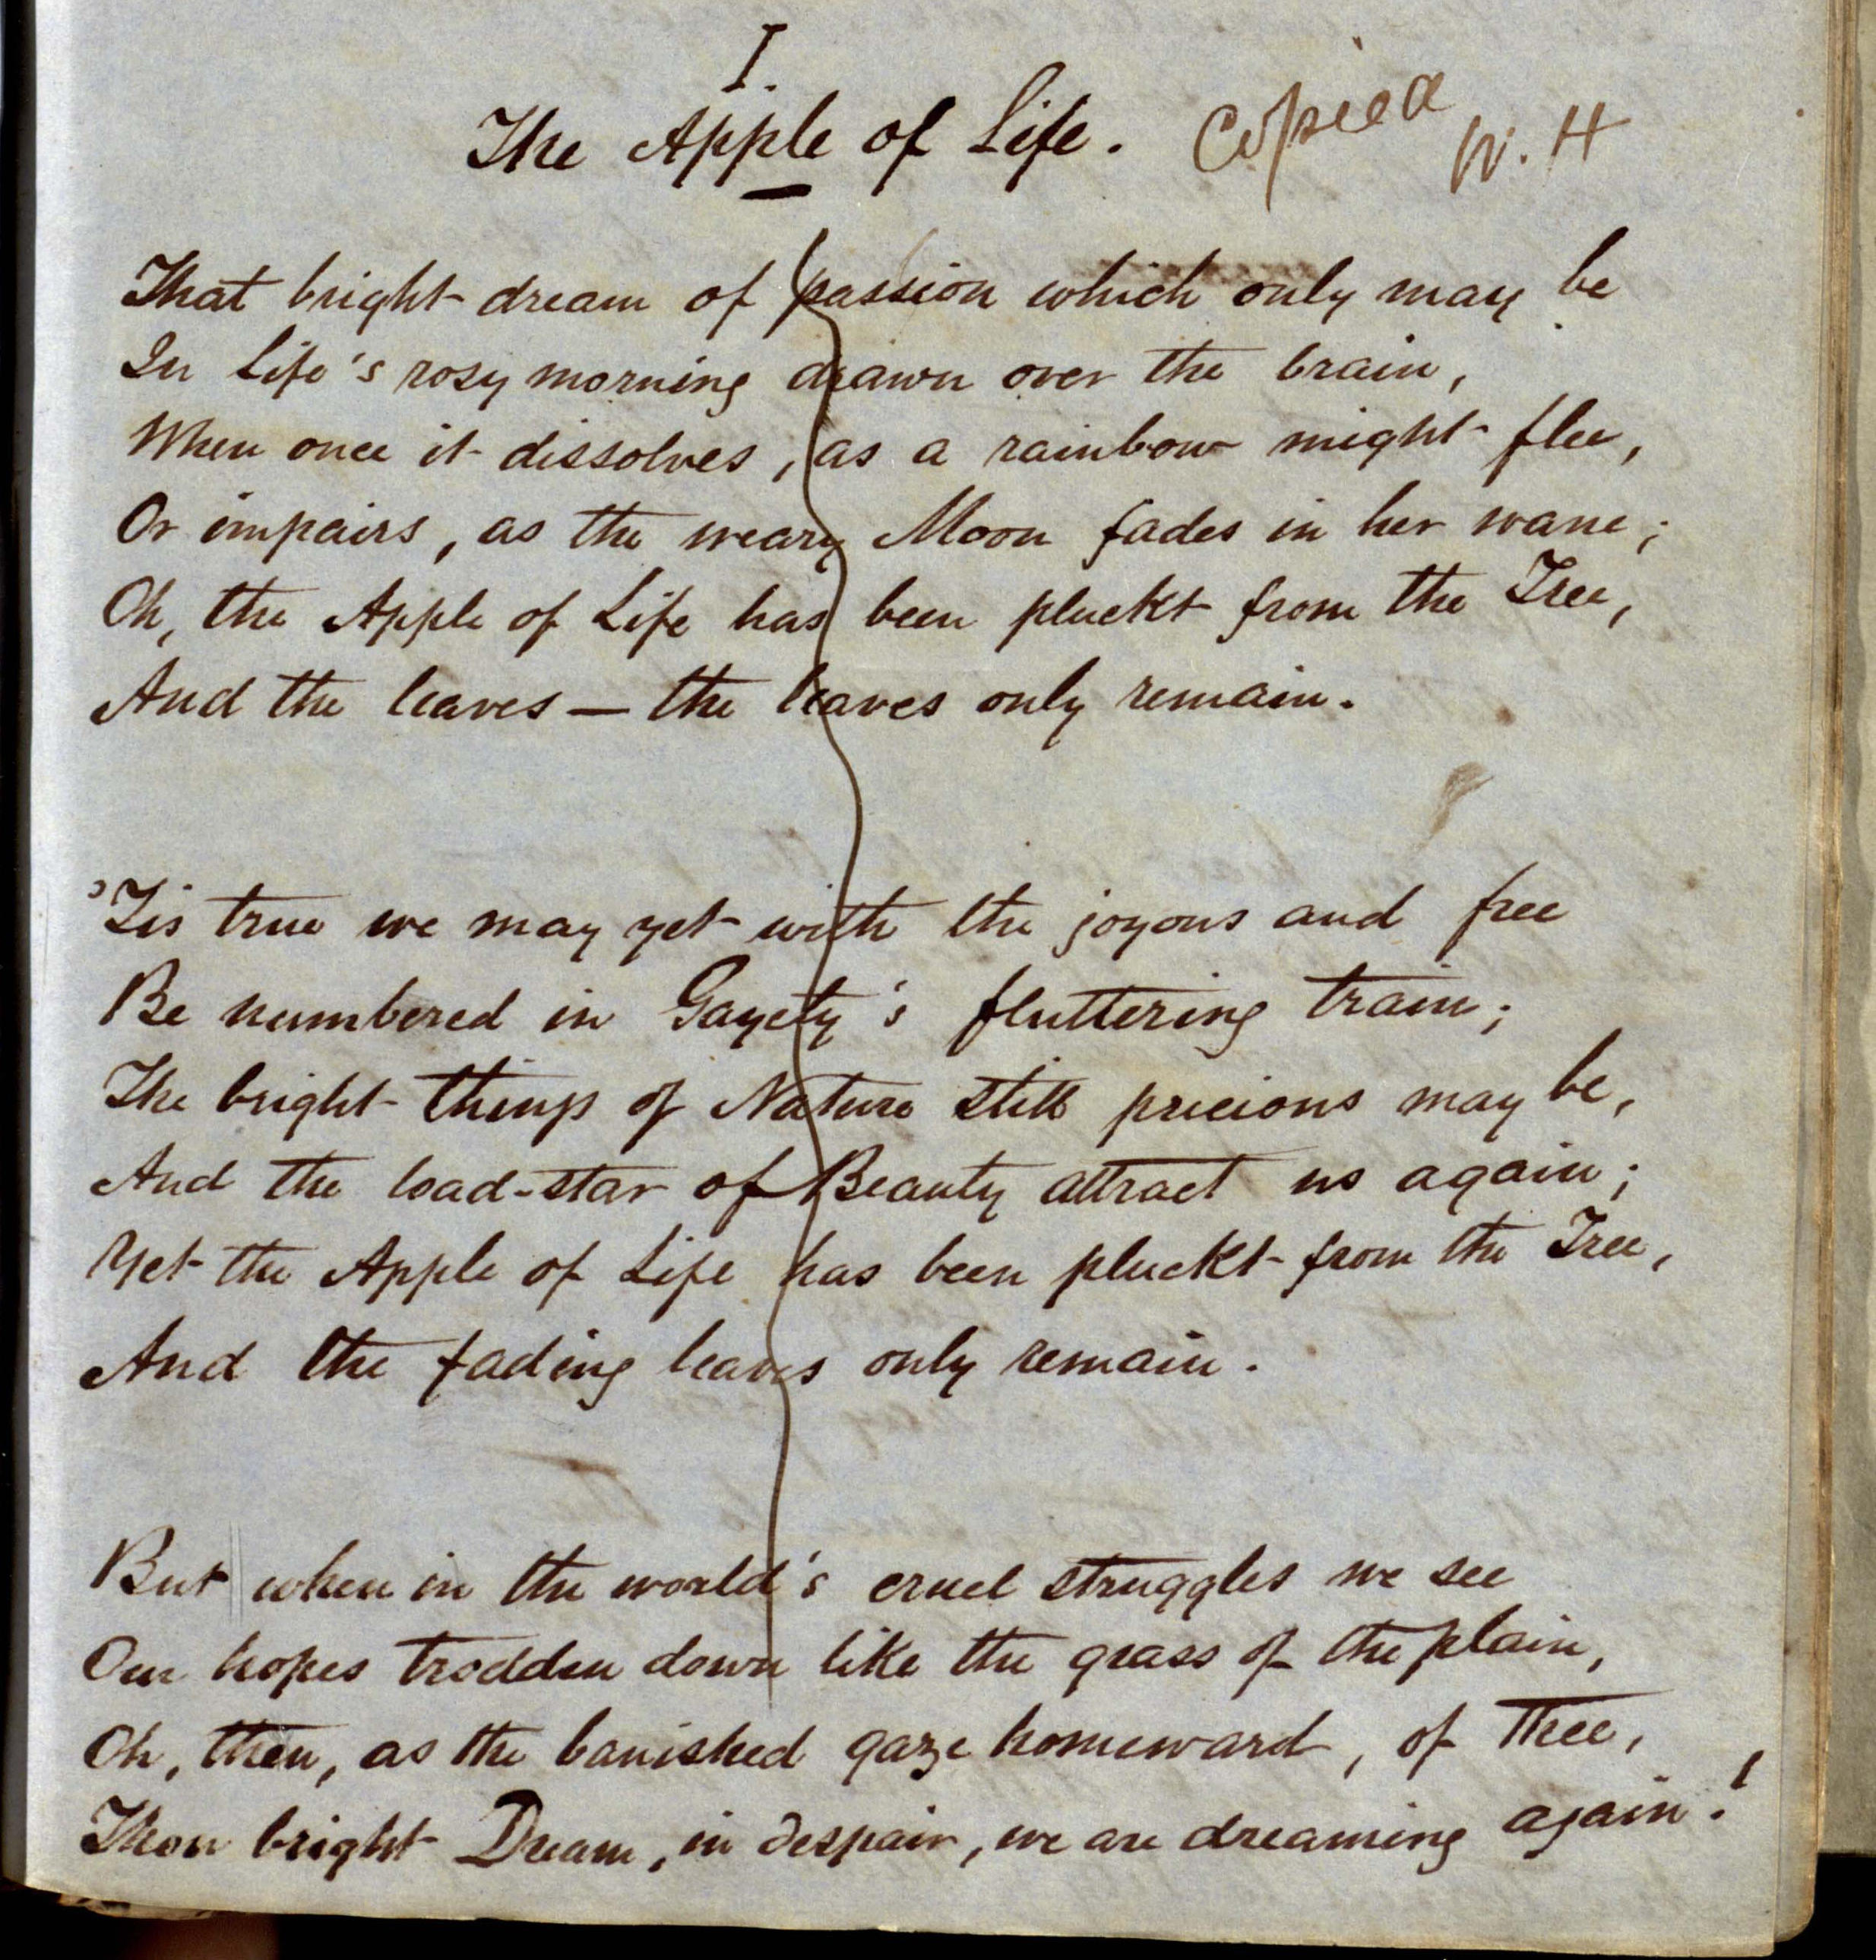 I.
The Apple of Life. Copied W. H
That bright dream of passion which only may be
In Life's rosy morning drawn over the brain,
When once it dissolves, as a rainbow might flee,
Or impairs, as the weary Moon fades in her wane;
Oh, the Apple of Life has been pluckt from the Tree,
And the leaves — the leaves only remain.
'Tis true we may yet with the joyous and free
Be numbered in Gayety's fluttering train;
The bright things of Nature still precious may be,
And the load-star of Beauty attract us again;
Yet the Apple of Life has been pluckt from the Tree,
And the fading leaves only remain.
But when in the world's cruel struggles we see
Our hopes trodden down like the grass of the plain,
Oh, then, as the banished gaze homeward, of Thee,
Thou bright Dream, in despair, we are dreaming again!